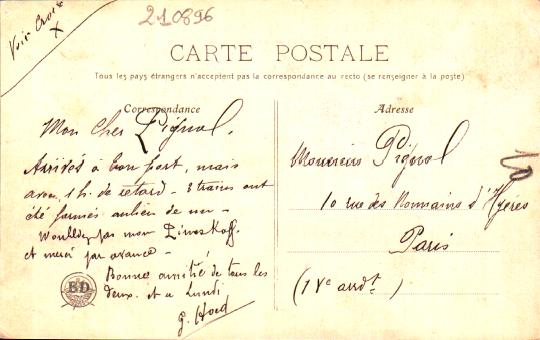 Voir Croix
X
210896
CARTE POSTALE
Tous les pays étrangers n'acceptent pas la correspondance au recto (se renseigner à la poste)
Correspondance
Mon Cher Pignol,
Arrivés à bon port, mais
avec 1 h. de retard - 2 trains ont
été formés au lieu de un -
par mon
et merci par avance -
Bonne amitié de tous les
deux. et a Lundi
BD
Adresse
Monsieur Pignol
10 rue des Nonnains d'Hyères
Paris
(IVe ardt)